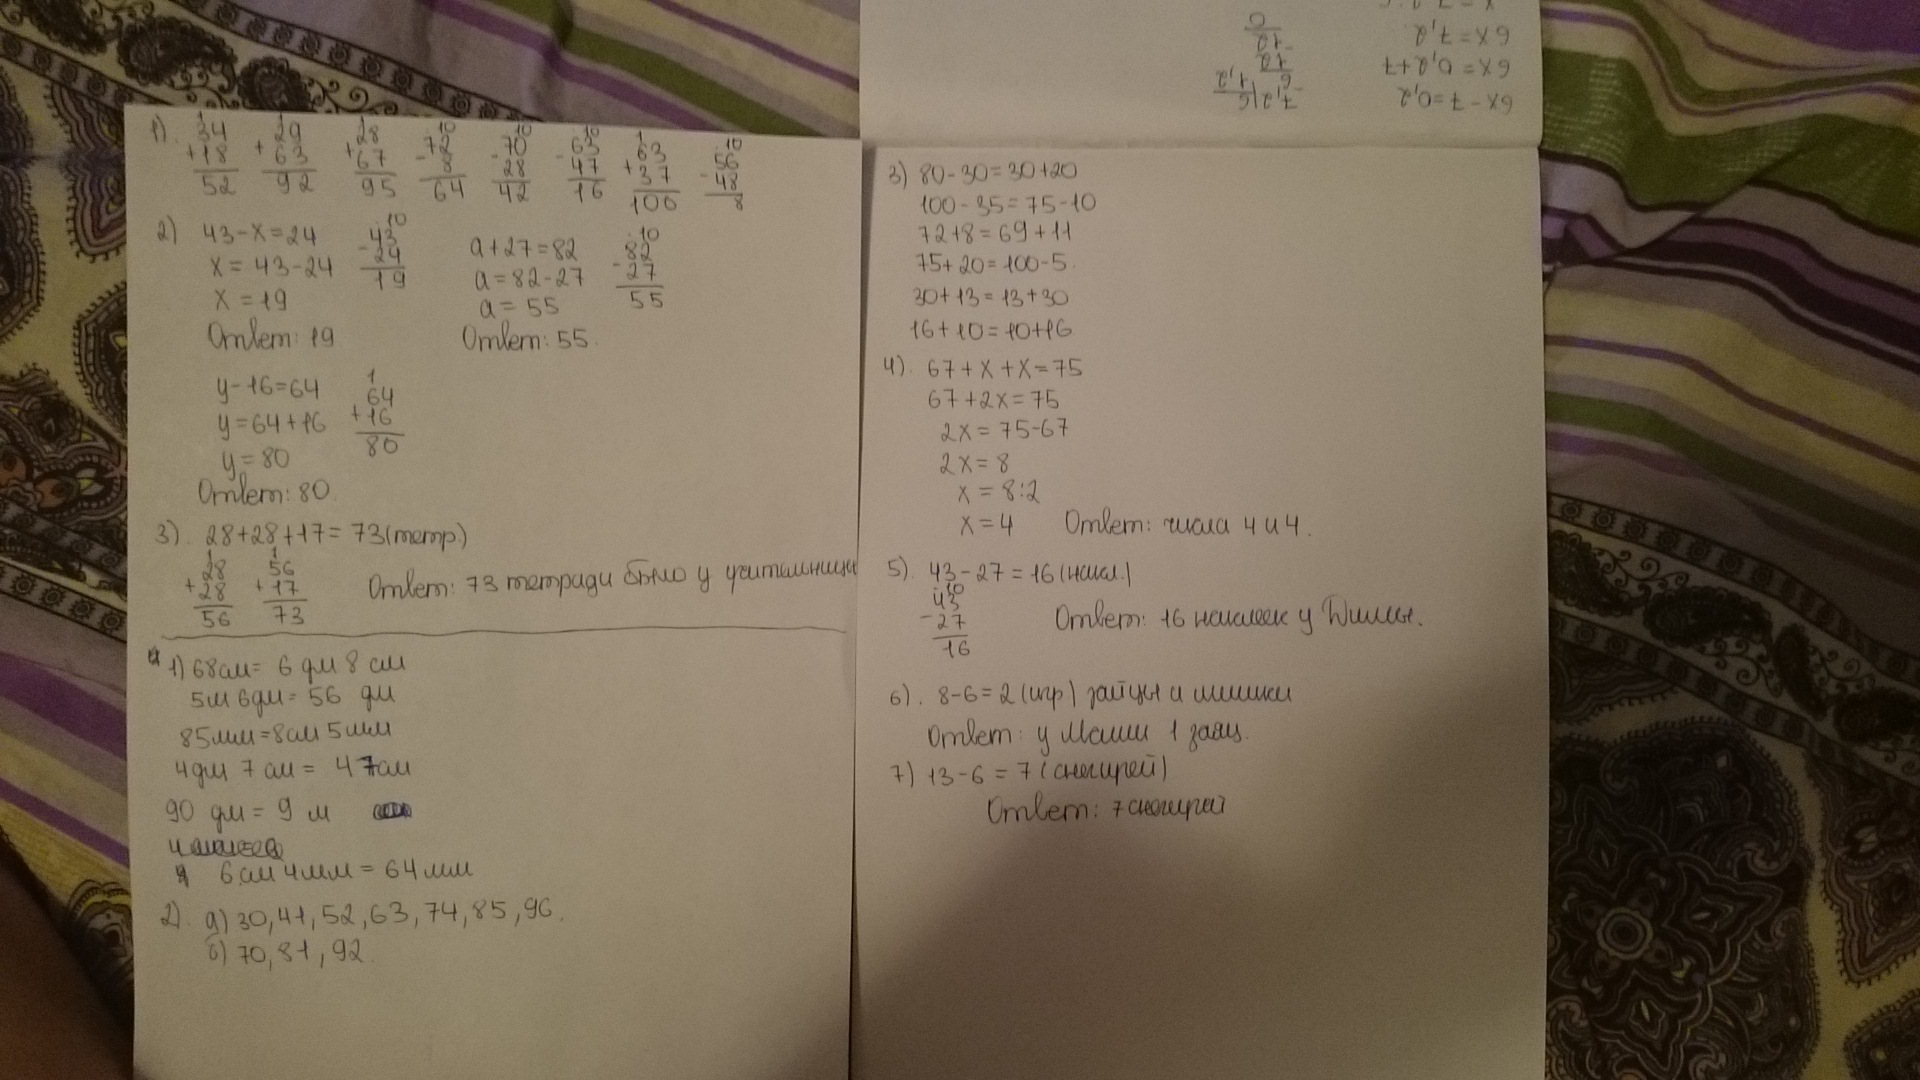 1). 34 +18 52   29 +63 92   28 +67 95   72 -8 64   70 -28 42   63 -47 16   63 +37 100   56 -48 8
2) 43-x=24   43 -24 19   a+27=82   82 -27 55
x=43-24   a=82-27
x=19   a=55
Ответ: 19   Ответ: 55.
y-16=64   64 +16 80
y=64+16
y=80
Ответ: 80.
3). 28+28+17=73(тетр.)
28 +28 56   56 +17 73   Ответ: 73 тетради было у учительницы
1) 68см= 6 дм 8 см
5м 6дм= 56 дм
85мм=8см 5мм
4дм 7 см = 47см
90 дм = 9 м
6 см 4мм = 64мм
2). а) 30, 41, 52, 63, 74, 85, 96.
б) 70, 81, 92.
6x-7=0,2   7,2|6 1,2
6x=0,2+7   6 12
6x=7,2   -12 0
3) 80-30=30+20
100-35=75-10
72+8=69+11
75+20=100-5.
30+13=13+30
16+10=10+16.
4). 67+x+x=75
67+2x=75
2x=75-67
2x=8
x=8:2
x=4   Ответ: числа 4 и 4.
5). 43-27=16(накл.)
43 -27 16   Ответ: 16 наклеек у Димы.
6). 8-6=2(игр) зайцы и мишки
Ответ: у Маши 1 заяц.
7) 13-6=7(снегирей)
Ответ: 7 снегирей